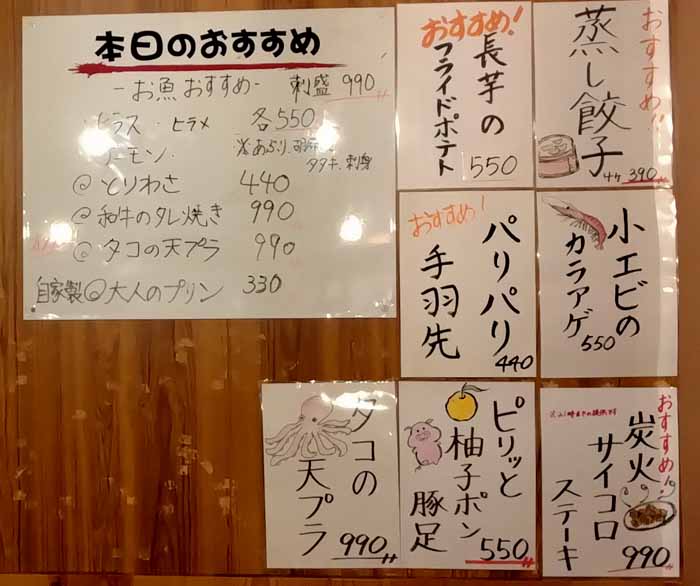 本日のおすすめ
-お魚おすすめ- 刺盛 990
ヒラス・ヒラメ 各550
ーモン・
タタキ、刺身
◎とりわさ 440
◎和牛のタレ焼き 990
◎タコの天プラ 990
自家製◎大人のプリン 330
おすすめ!
長芋の
フライドポテト
550
おすすめ!!
蒸し餃子
4ケ 390
おすすめ!
パリパリ
手羽先
440
小エビの
カラアゲ
550
タコの
天プラ
990
ピリッと
柚子ポン
豚足
550
おすすめ!
炭火
サイコロ
ステーキ
990